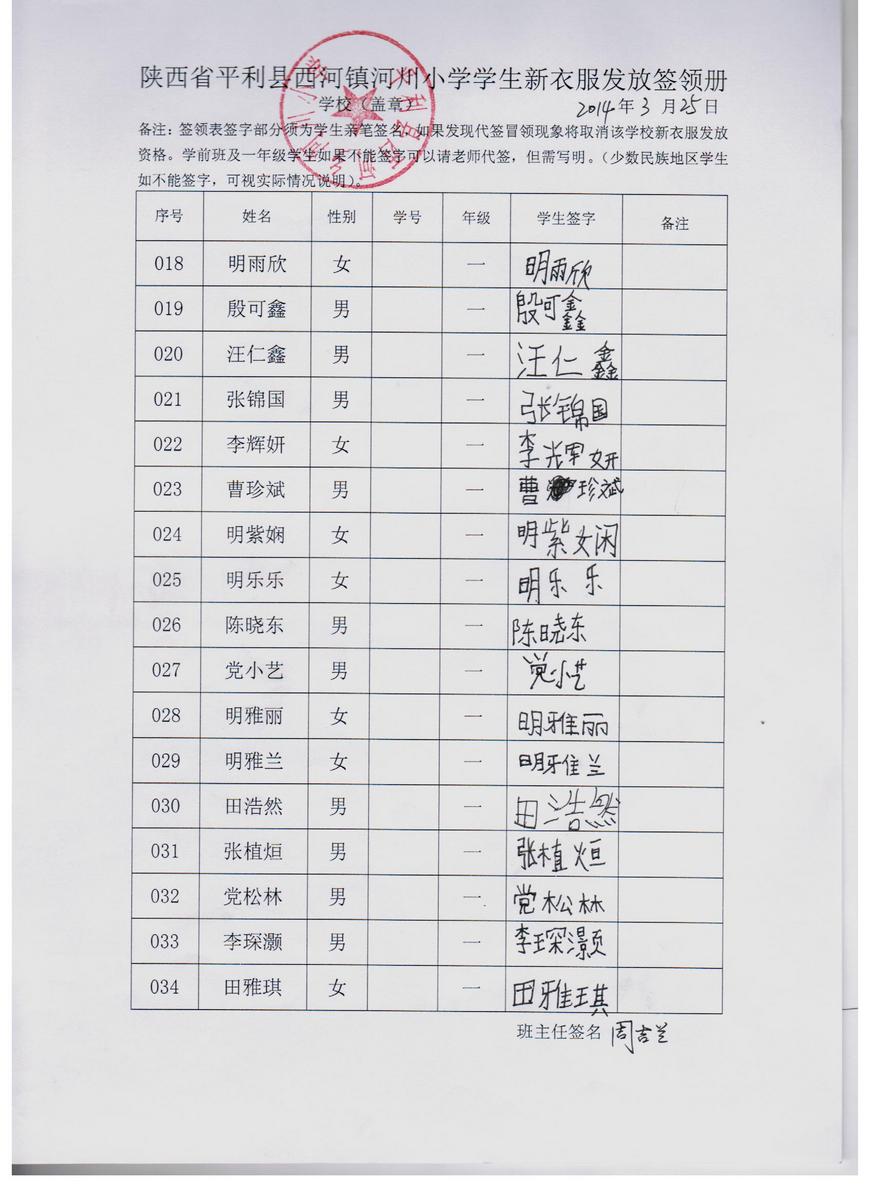 陕西省平利县西河镇河川小学学生新衣服发放签领册
学校（盖章） 2014年3月25日
备注：签领表签字部分须为学生亲笔签名，如果发现代签冒领现象将取消该学校新衣服发放
资格。学前班及一年级学生如果不能签字可以请老师代签，但需写明。（少数民族地区学生
如不能签字，可视实际情况说明）。
序号 姓名 性别 学号 年级 学生签字 备注
018 明雨欣 女 一 明雨欣
019 殷可鑫 男 一 殷可鑫
020 汪仁鑫 男 一 汪仁鑫
021 张锦国 男 一 张锦国
022 李辉妍 女 一 李辉妍
023 曹珍斌 男 一 曹珍斌
024 明紫娴 女 一 明紫娴
025 明乐乐 女 一 明乐乐
026 陈晓东 男 一 陈晓东
027 党小艺 男 一 党小艺
028 明雅丽 女 一 明雅丽
029 明雅兰 女 一 明雅兰
030 田浩然 男 一 田浩然
031 张植烜 男 一 张植烜
032 党松林 男 一 党松林
033 李琛灏 男 一 李琛灏
034 田雅琪 女 一 田雅琪
班主任签名 周吉兰